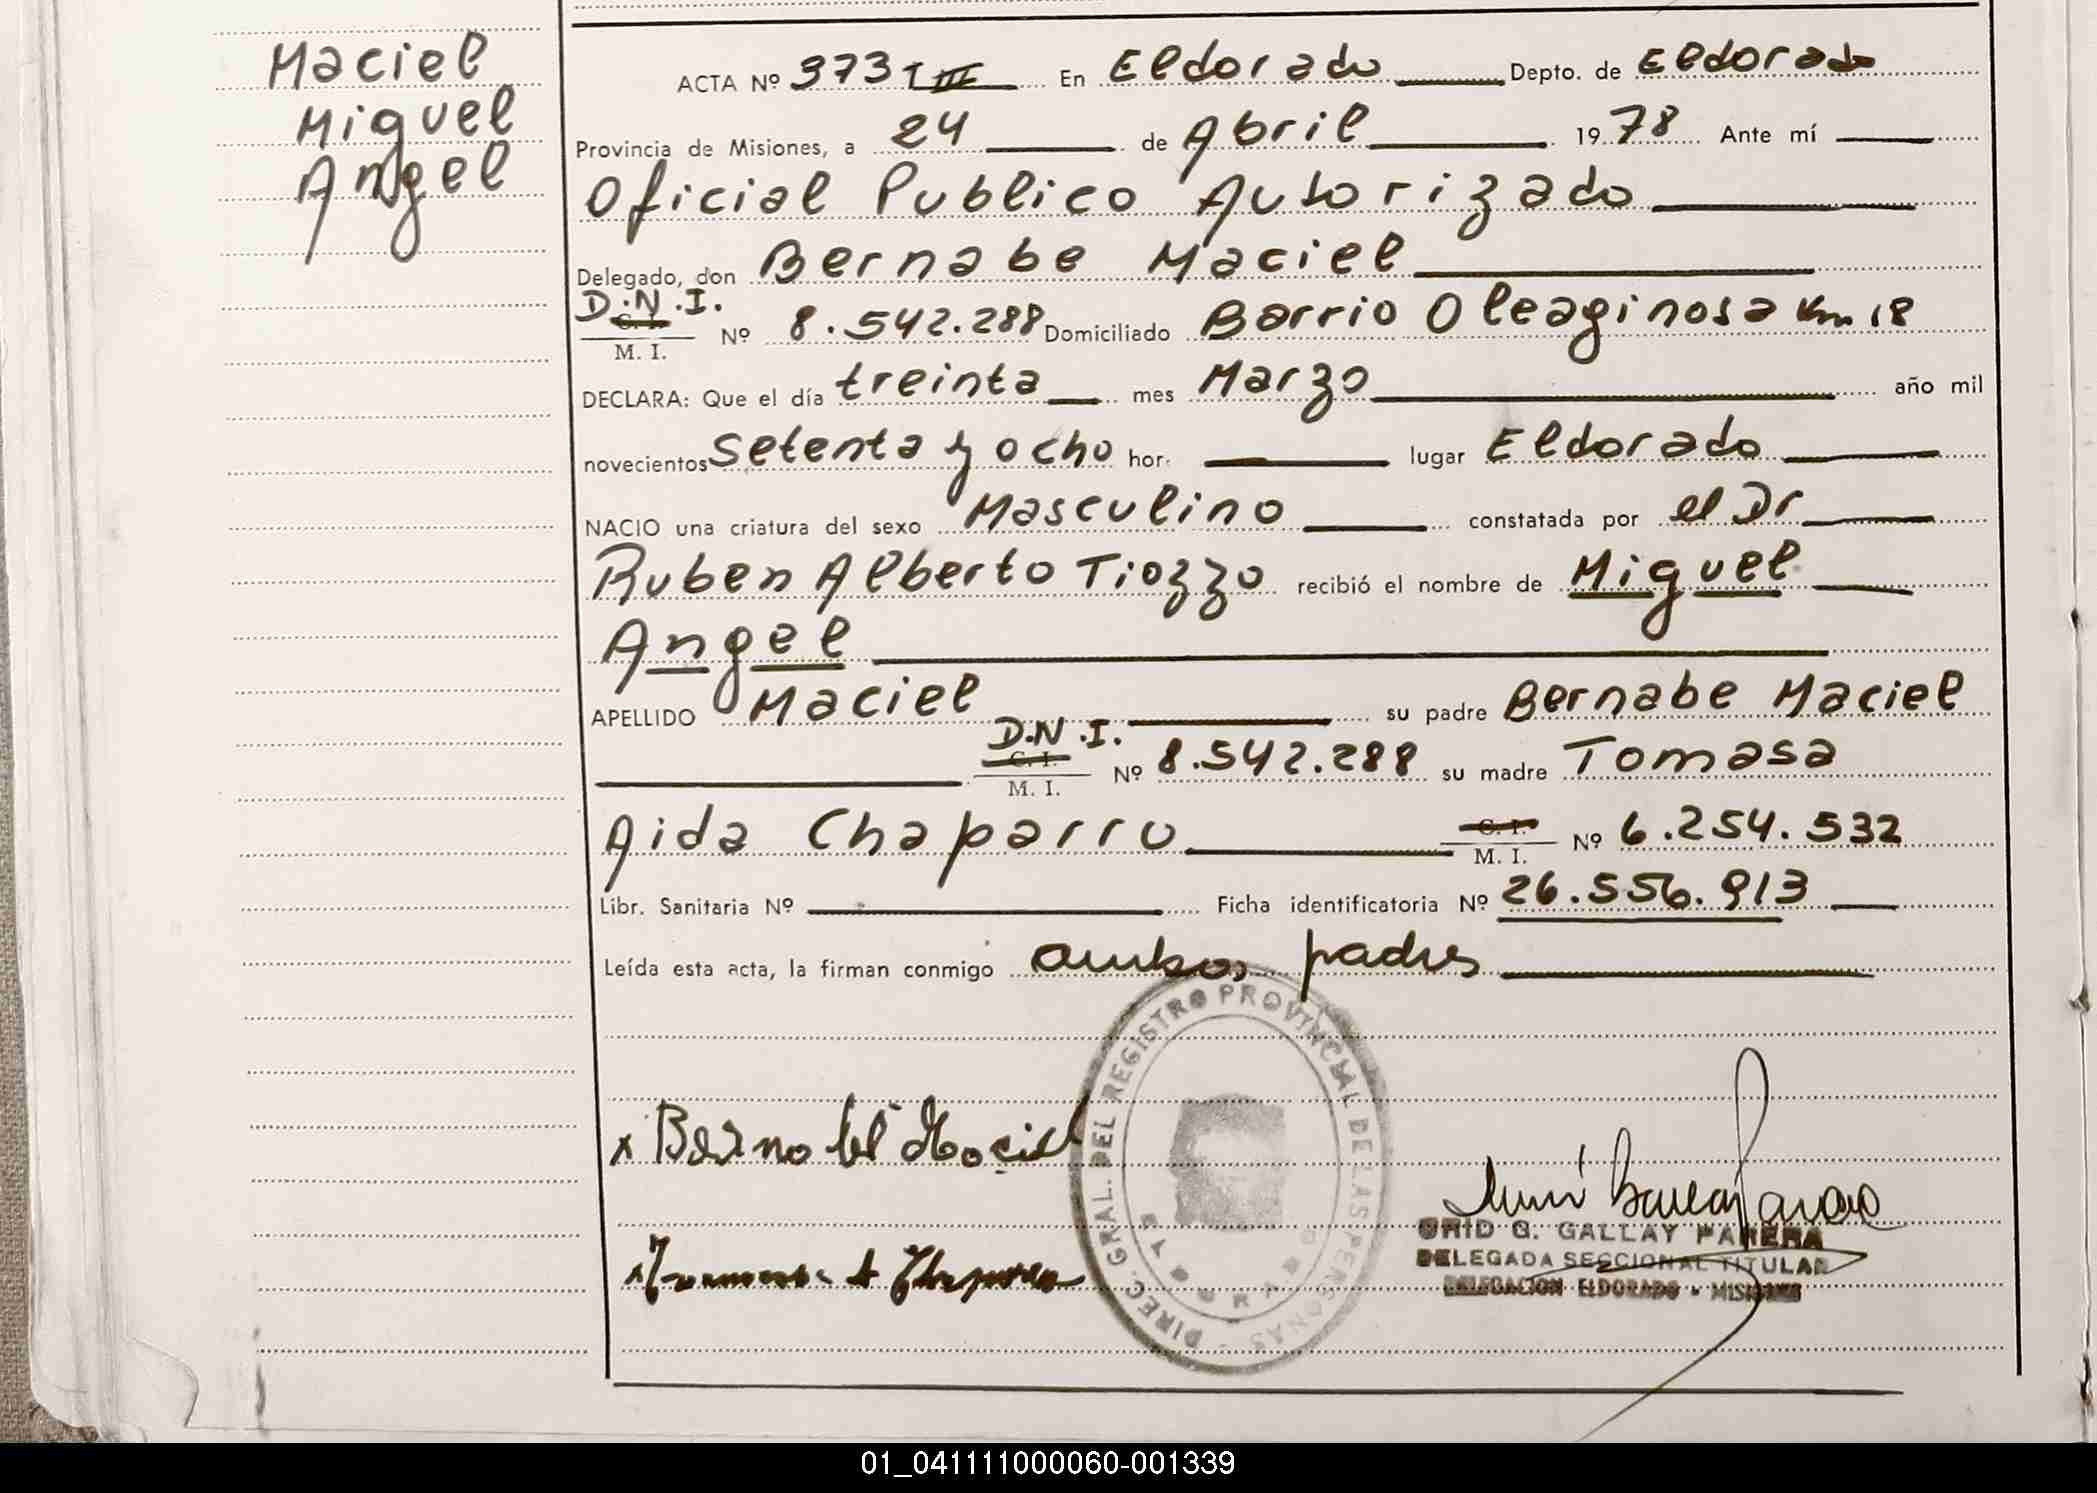 Maciel
Miguel
Angel
ACTA Nº 373 T III En Eldorado Depto. de Eldorado
Provincia de Misiones, a 24 de Abril 1978 Ante mí
Oficial Publico Autorizado
Delegado, don Bernabe Maciel
D.N.I.
C. I.
M. I. Nº 8.542.288 Domiciliado Barrio Oleaginosa Km 18
DECLARA: Que el día treinta mes Marzo año mil
novecientos setenta y ocho hor. lugar Eldorado
NACIO una criatura del sexo Masculino constatada por el Dr
Ruben Alberto Tiozzo recibió el nombre de Miguel
Angel
APELLIDO Maciel su padre Bernabe Maciel
D.N.I.
C. I.
M. I. Nº 8.542.288 su madre Tomasa
Aida Chaparro C. I.
M. I. Nº 6.254.532
Libr. Sanitaria Nº Ficha identificatoria Nº 26.556.913
Leída esta acta, la firman conmigo ambos padres
DIREC. GRAL. DEL REGISTRO PROVINCIAL DE LAS PERSONAS
ELDORADO
x Bernabé Maciel
x Tomasa A Chaparro
G. GALLAY PARERA
DELEGADA SECCIONAL TITULAR
DELEGACION ELDORADO - MISIONES
01_041111000060-001339